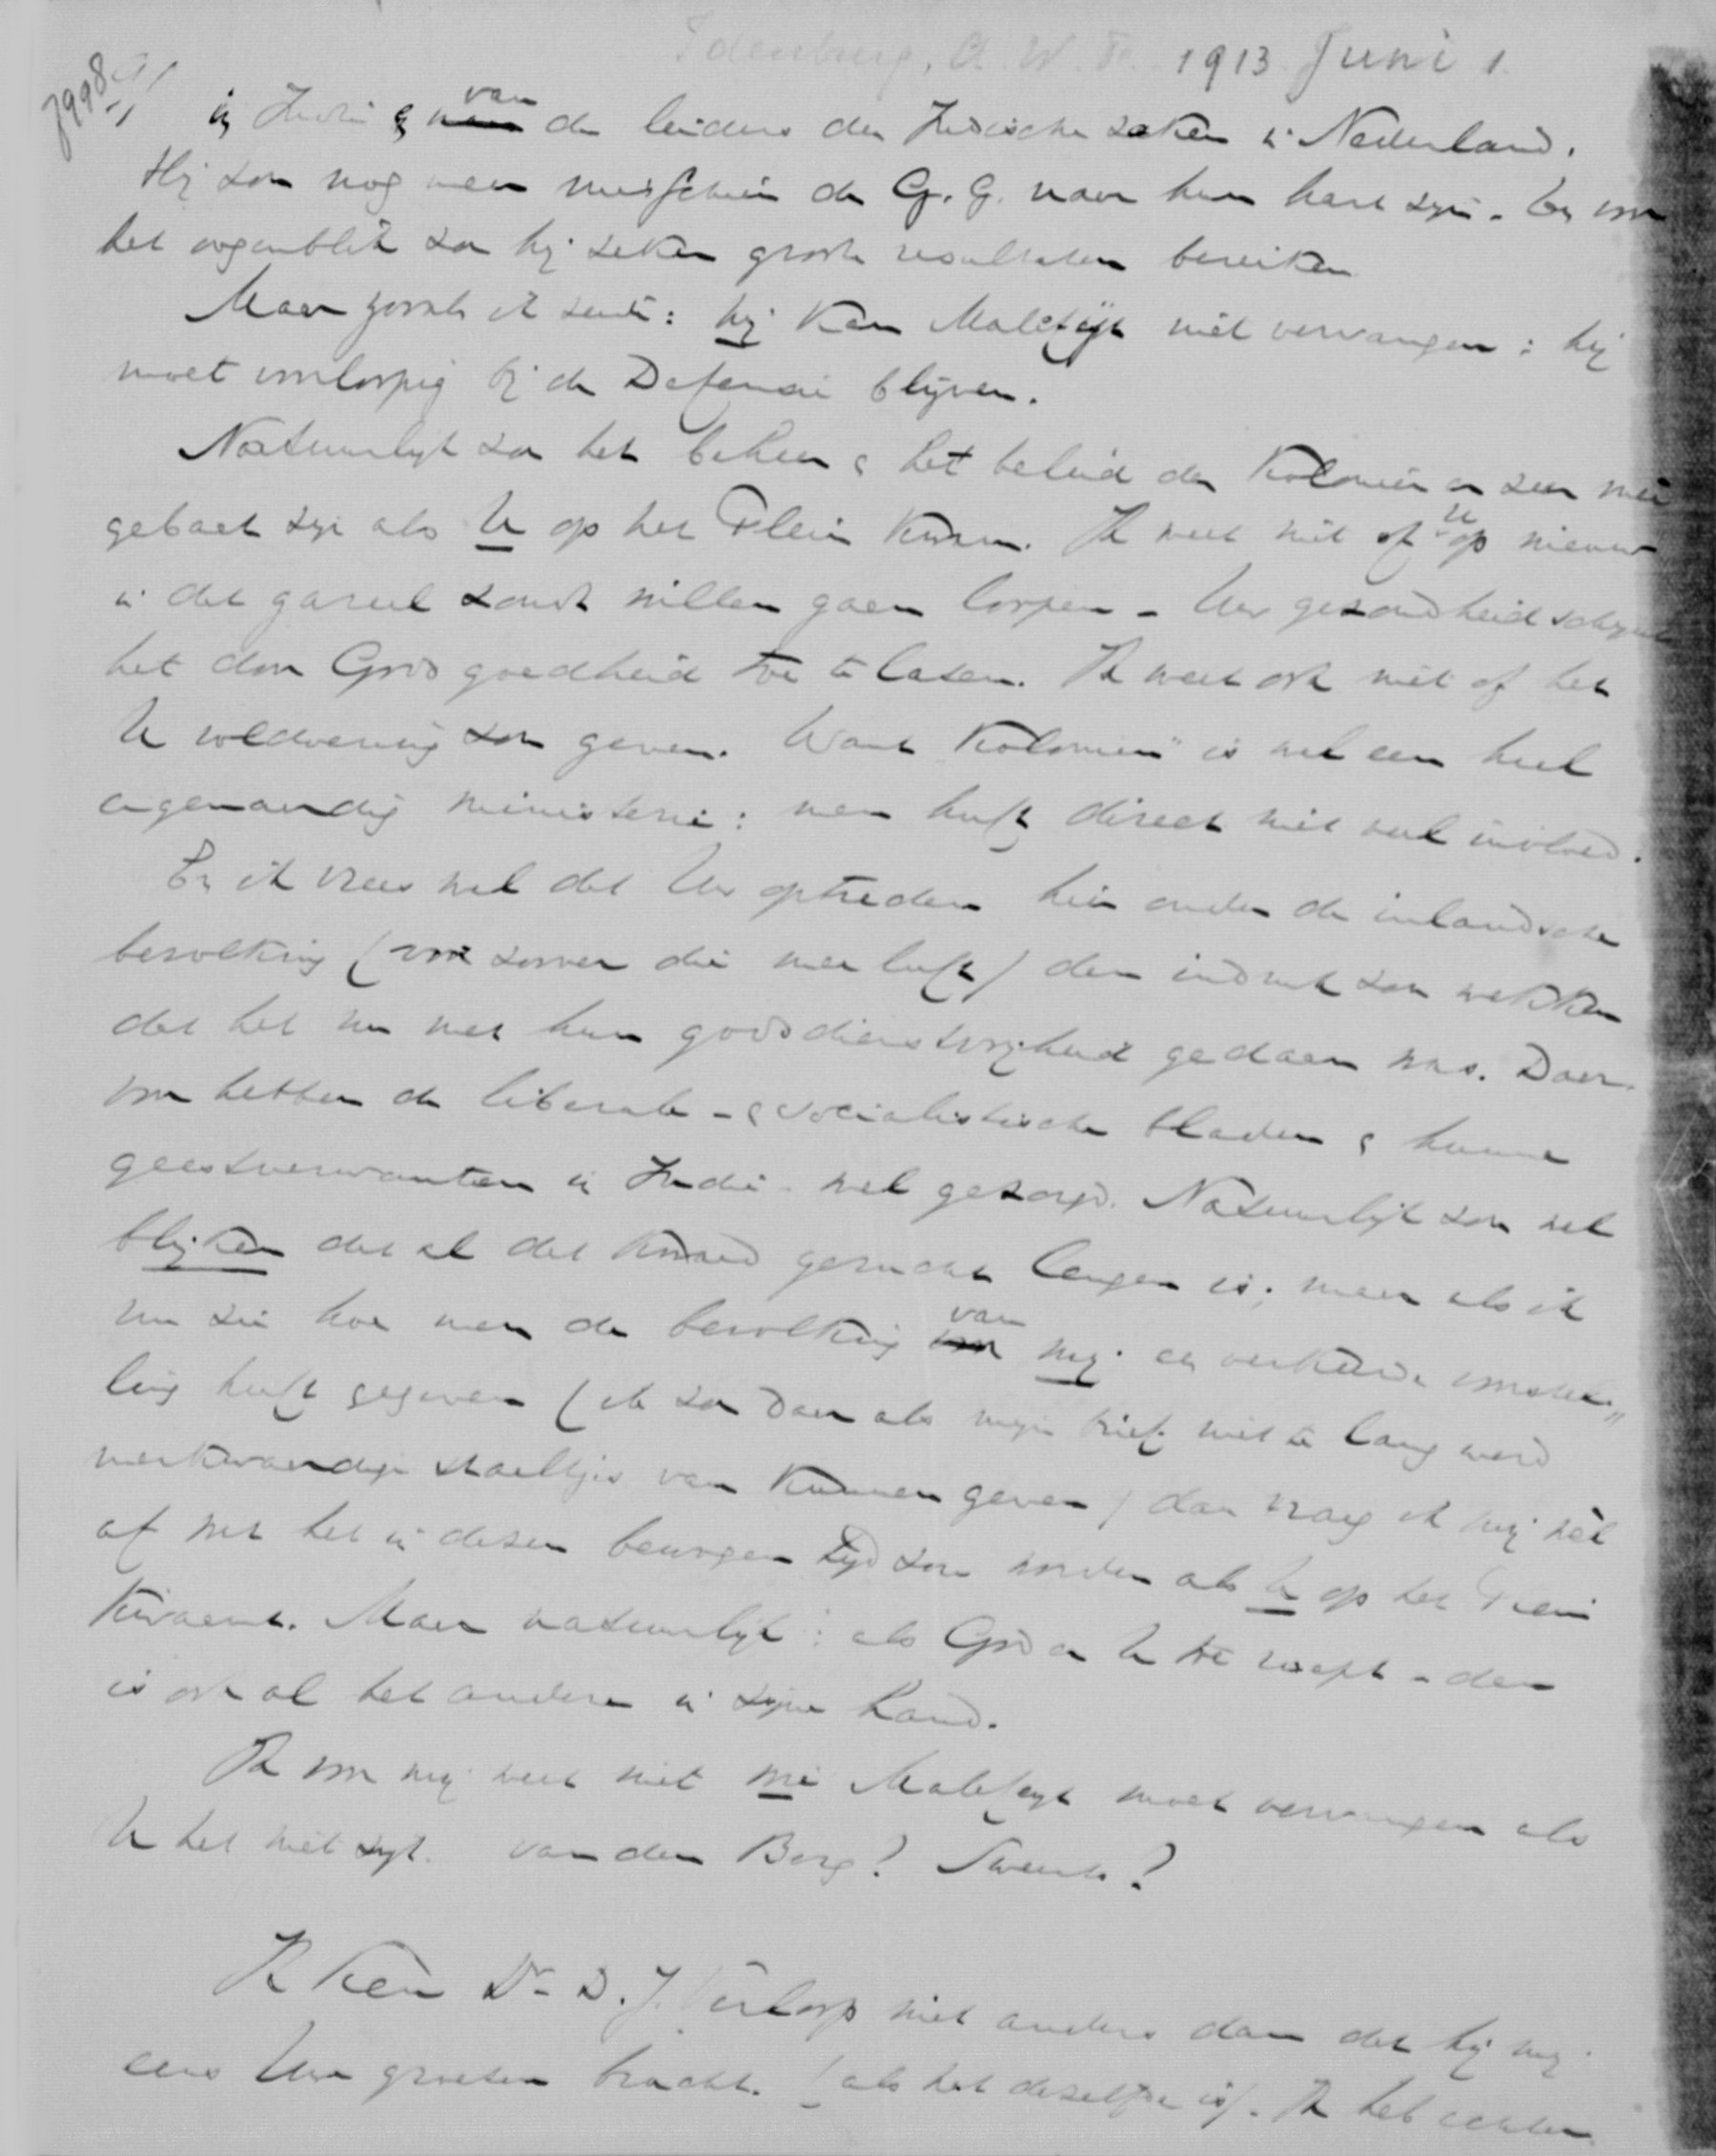 Idenburg, A. W. F. 1913 Juni 1.
7998
in Indië & van de leiders der Indische zaken in Nederland.
Hij zou nog meer misschien de G. G. naar hun hart zijn. En voor
het oogenblik zou hij zeker groote resultaten bereiken
Maar zooals ik zeide: hij kan Malefijt niet vervangen: hij
moet voorloopig bij de Defensie blijven.
Natuurlijk zou het beheer & het beleid der Koloniën er zeer mee
gebaat zijn als U op het Plein kwam. Ik weet niet of U op nieuw
in dat gareel zoudt willen gaan loopen - Uw gezondheid schijnt
het door Gods goedheid toe te laten. Ik weet ook niet of het
U voldoening zou geven. Want "Koloniën" is wel een heel
eigenaardig ministerie: men heeft direct niet veel invloed.
En ik vrees wel dat Uw optreden hier onder de inlandsche
bevolking (voor zoover die mee leeft) den indruk zou wekken
dat het nu met hun godsdienstvrijheid gedaan was. Daar-
voor hebben de liberale - & socialistische bladen & hunne
geestverwanten in Indië - wel gezorgd. Natuurlijk zou wel
blijken dat al dat kwaad gerucht leugen is; maar als ik
nu zie hoe men de bevolking van mij een verkeerde voorstel-
ling heeft gegeven (ik zou daar als mijn brief niet te lang werd
merkwaardige staaltjes van kunnen geven) dan vraag ik mij wèl
af wat het in dezen bewogen tijd zou worden als U op het Plein
kwaamt. Maar natuurlijk: als God er U toe roept - dan
is ook al het andere in zijne hand.
Ik voor mij weet niet wie Malefijt moet vervangen als
U het niet zijt. van den Berg? Sweerts?
Ik ken Dr. D. J. Verloop niet anders dan dat hij mij
eens Uwe groeten bracht. (als het dezelfde is). Ik heb echter